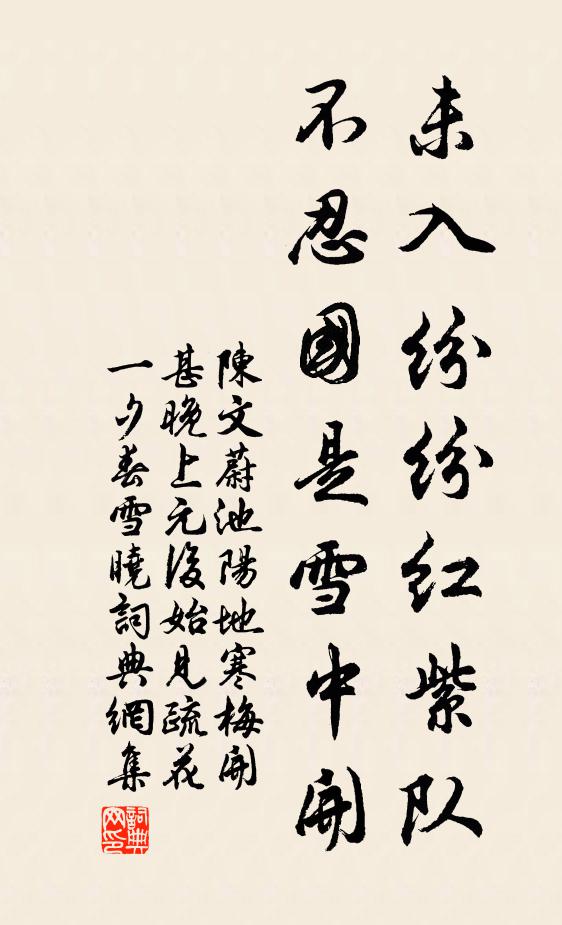 未入纷纷红紫队
不忍國是雪中開
陳文蔚池陽地寒梅開
甚晚上元後始見疏花
一夕春雪曉詞典網集
詞典网印